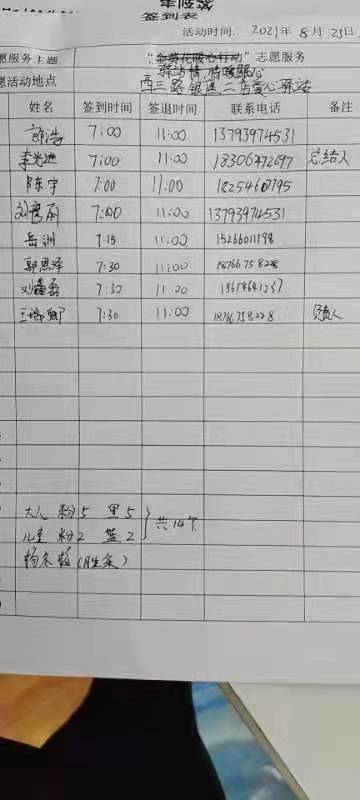 签到表
活动时间: 2021年8月23日
愿服务主题 "金葵花暖心行动"志愿服务
愿活动地点 西三路银座二店爱心驿站
姓名 签到时间 签退时间 联系电话 备注
郭浩 7:00 11:00 13793974531
李光迪 7:00 11:00 总结人
陈宇 7:00 11:00 18254607795
7:00 11:00 13793974531
岳洲 7:15 11:00 15266011198
郭恩泽 7:30 11:00 18766758228
刘鑫磊 7:30 11:00
王瑞卿 7:30 11:00 18766758228 负责人
大人 粉5 黑5
儿童 粉2 蓝2 共14个